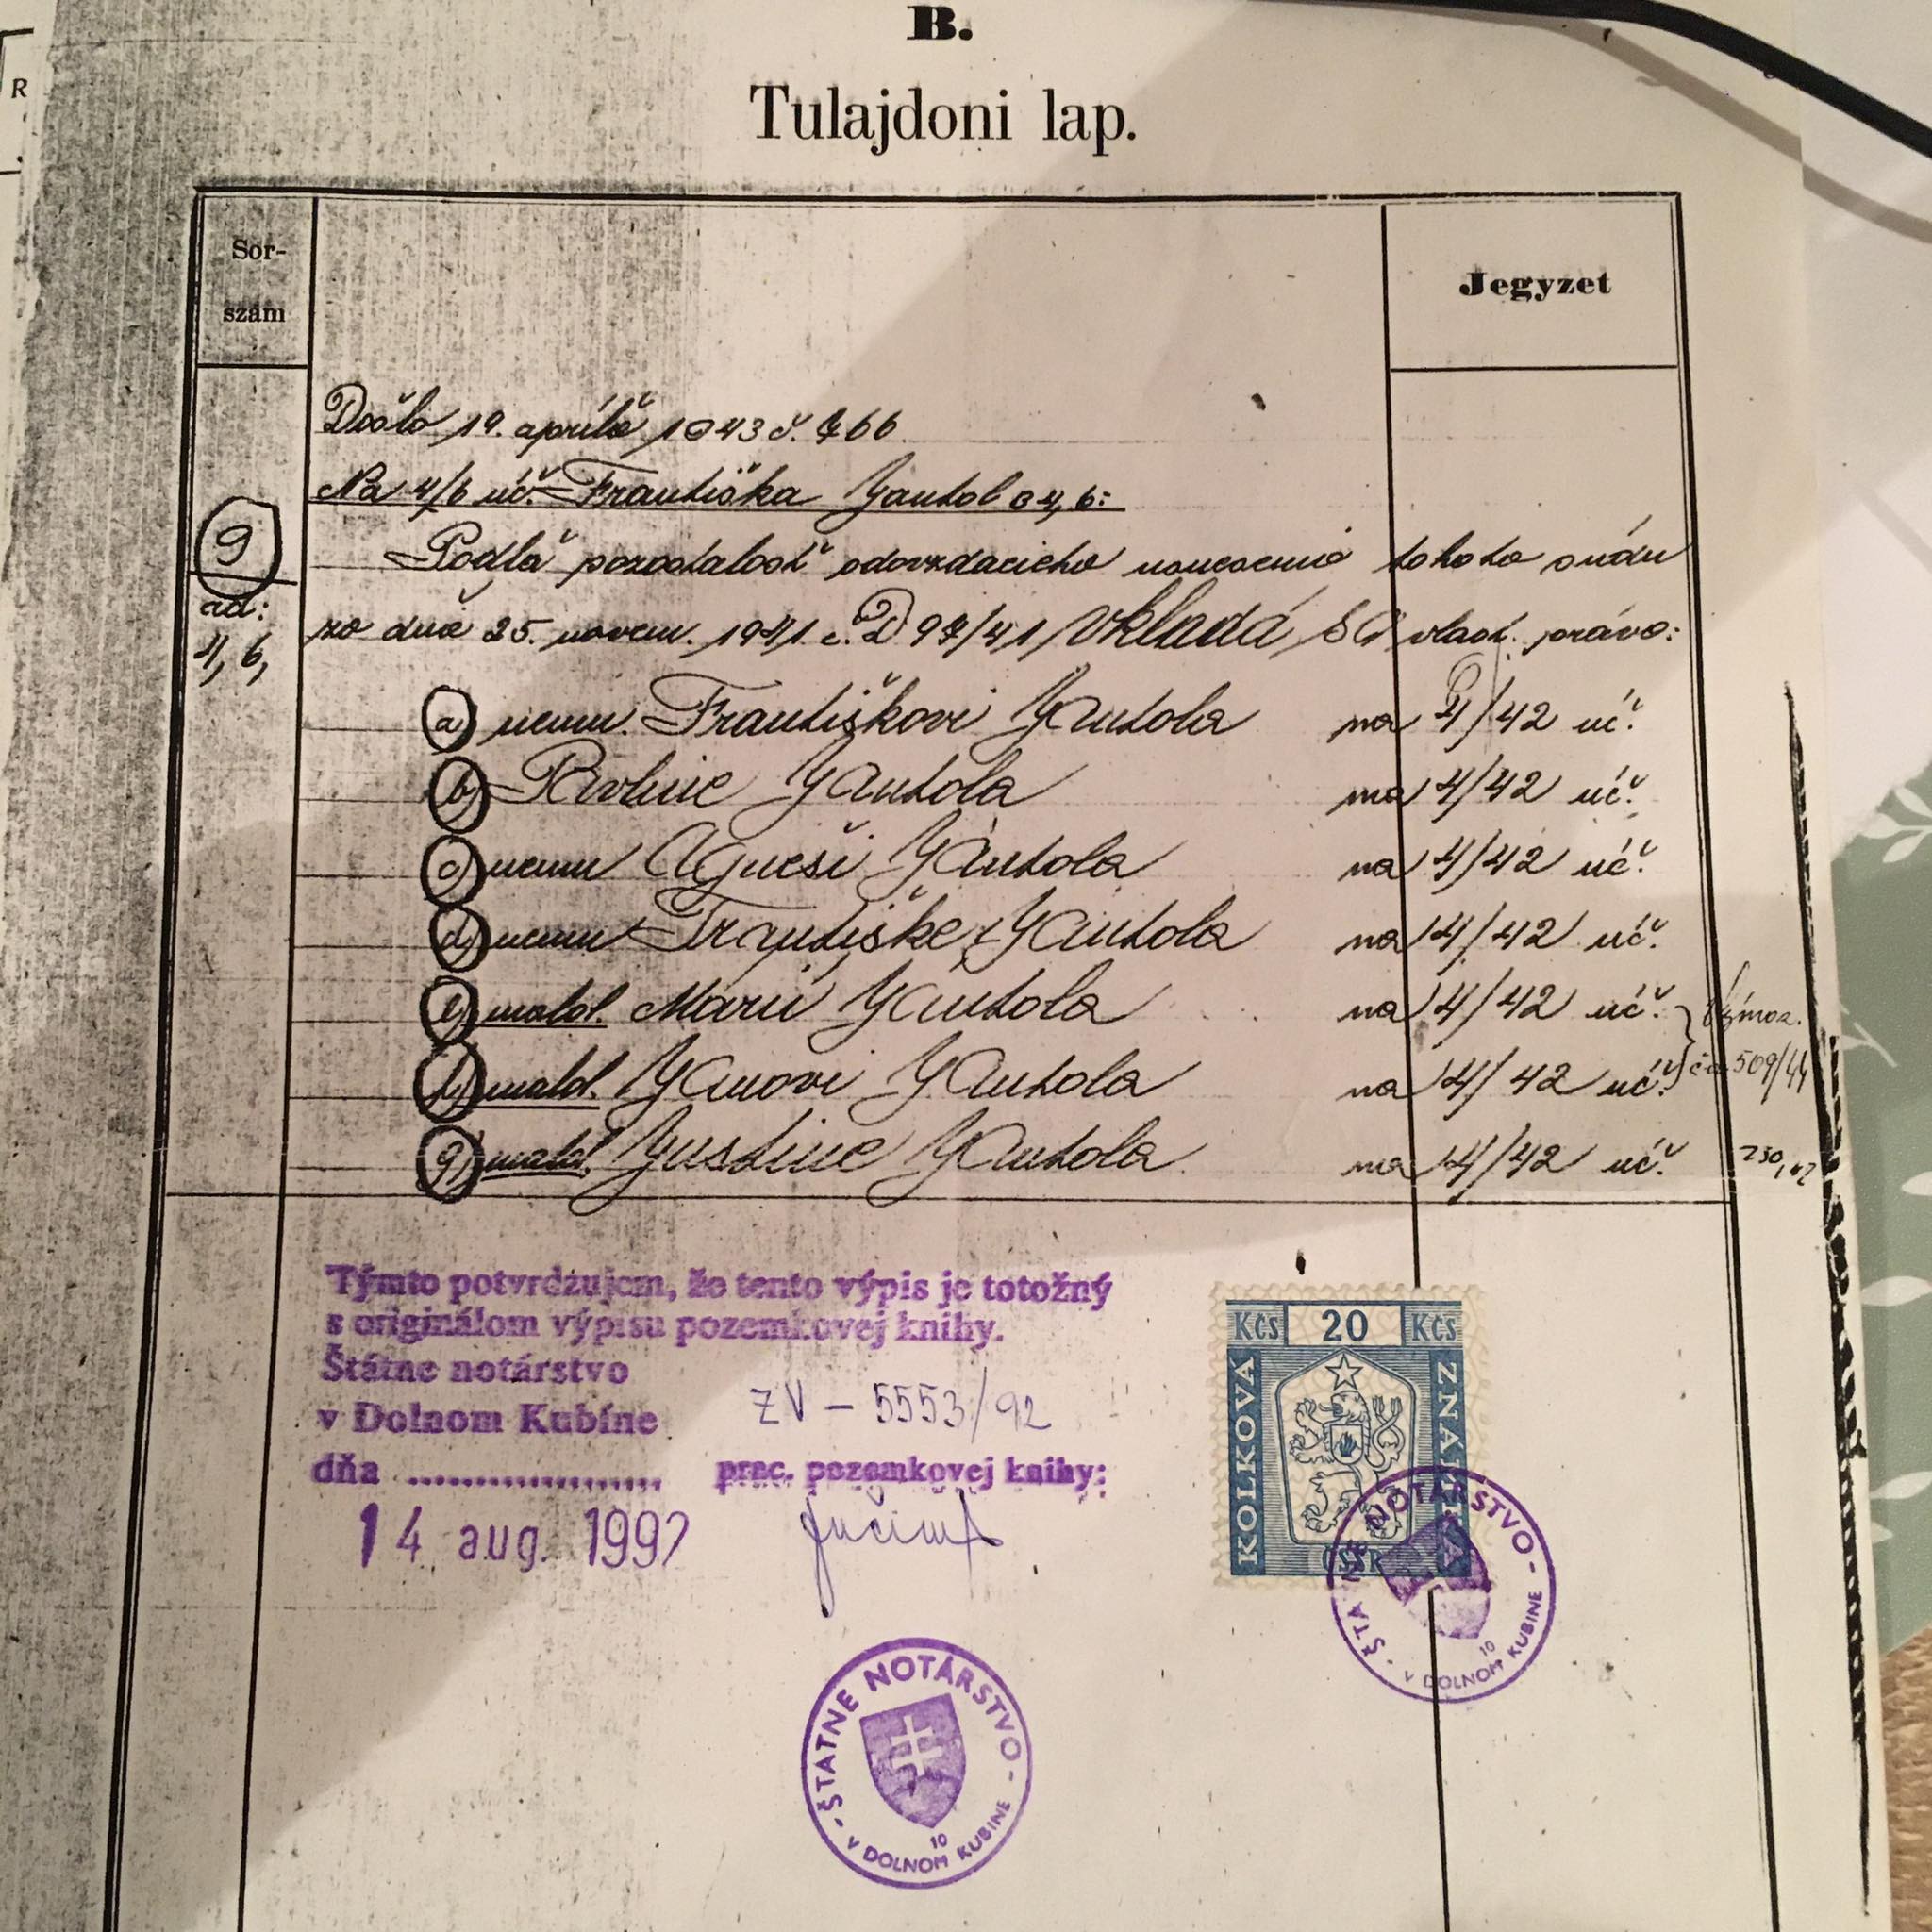 R
B.
Tulajdoni lap.
Sor-
szám
Jegyzet
Došlo 19. apríla 1943 č. 766.
Na 4/6 úč. Františka Jantol B 4, 6:
9
ad:
4, 6,
Podľa pozostalosť odovzdacieho usnesenia tohoto súdu
zo dňa 25. novem. 1941. č. D 97/41 vkladá sa vlast. právo:
a) nemu. Františkovi Jantola na 4/42 úč.
b) Jantola na 4/42 úč.
c) nemu Agneši Jantola na 4/42 úč.
d) nemu Františke Jantola na 4/42 úč.
e) malol. Marii Jantola na 4/42 úč.
f) malol. Janovi Jantola na 4/42 úč.
č. 509/44
g) malol. Justine Jantola na 4/42 úč.
Týmto potvrdzujem, že tento výpis je totožný
s originálom výpisu pozemkovej knihy.
Štátne notárstvo
v Dolnom Kubíne
ZV - 5553/92
dňa ................... prac. pozemkovej knihy:
14 aug. 1992
KČS 20 KČS
KOLKOVÁ
ZNÁMKA
ČSFR
ŠTÁTNE NOTÁRSTVO
V DOLNOM KUBINE
10
ŠTÁTNE NOTÁRSTVO
V DOLNOM KUBINE
10